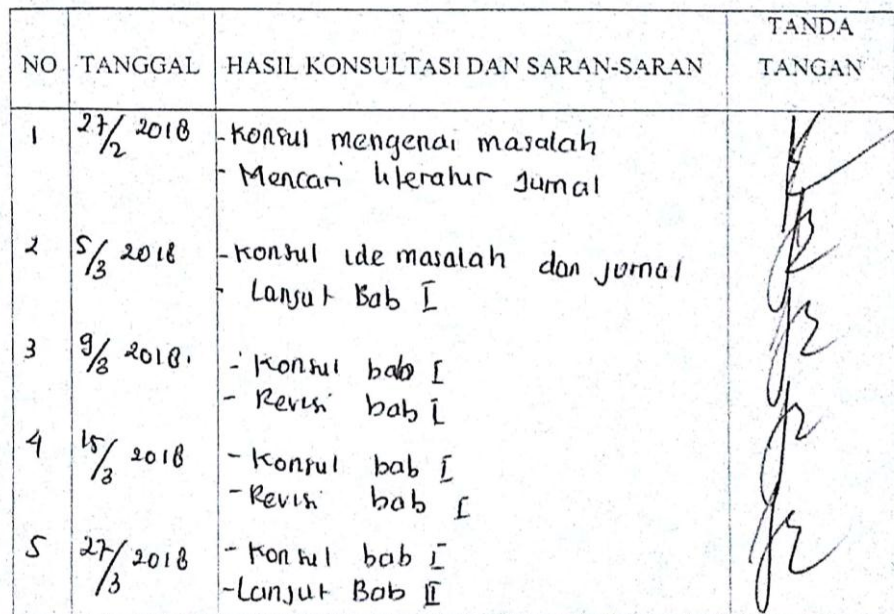 NO TANGGAL HASIL KONSULTASI DAN SARAN-SARAN TANDA TANGAN
1 27/2 2018 - Konsul mengenai masalah
- Mencari literatur Jurnal
2 5/3 2018 - Konsul ide masalah dan jurnal
- Lanjut Bab I
3 9/3 2018. - Konsul bab I
- Revisi bab I
4 15/3 2018 - Konsul bab I
- Revisi bab I
5 27/3 2018 - Konsul bab I
- Lanjut Bab II